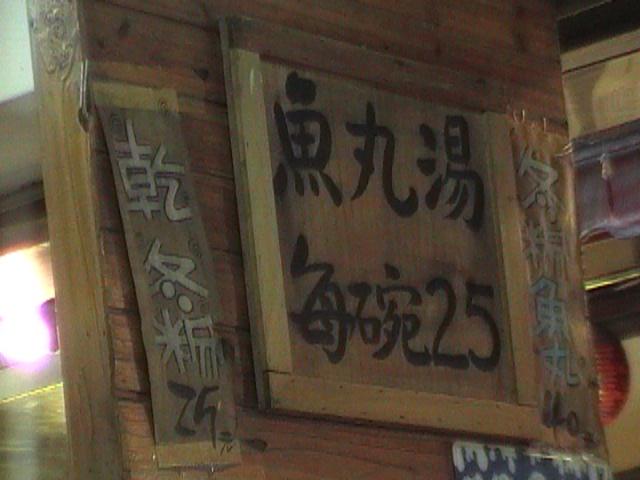 魚丸湯
每碗25
乾冬粉
25元
冬粉魚丸
40元